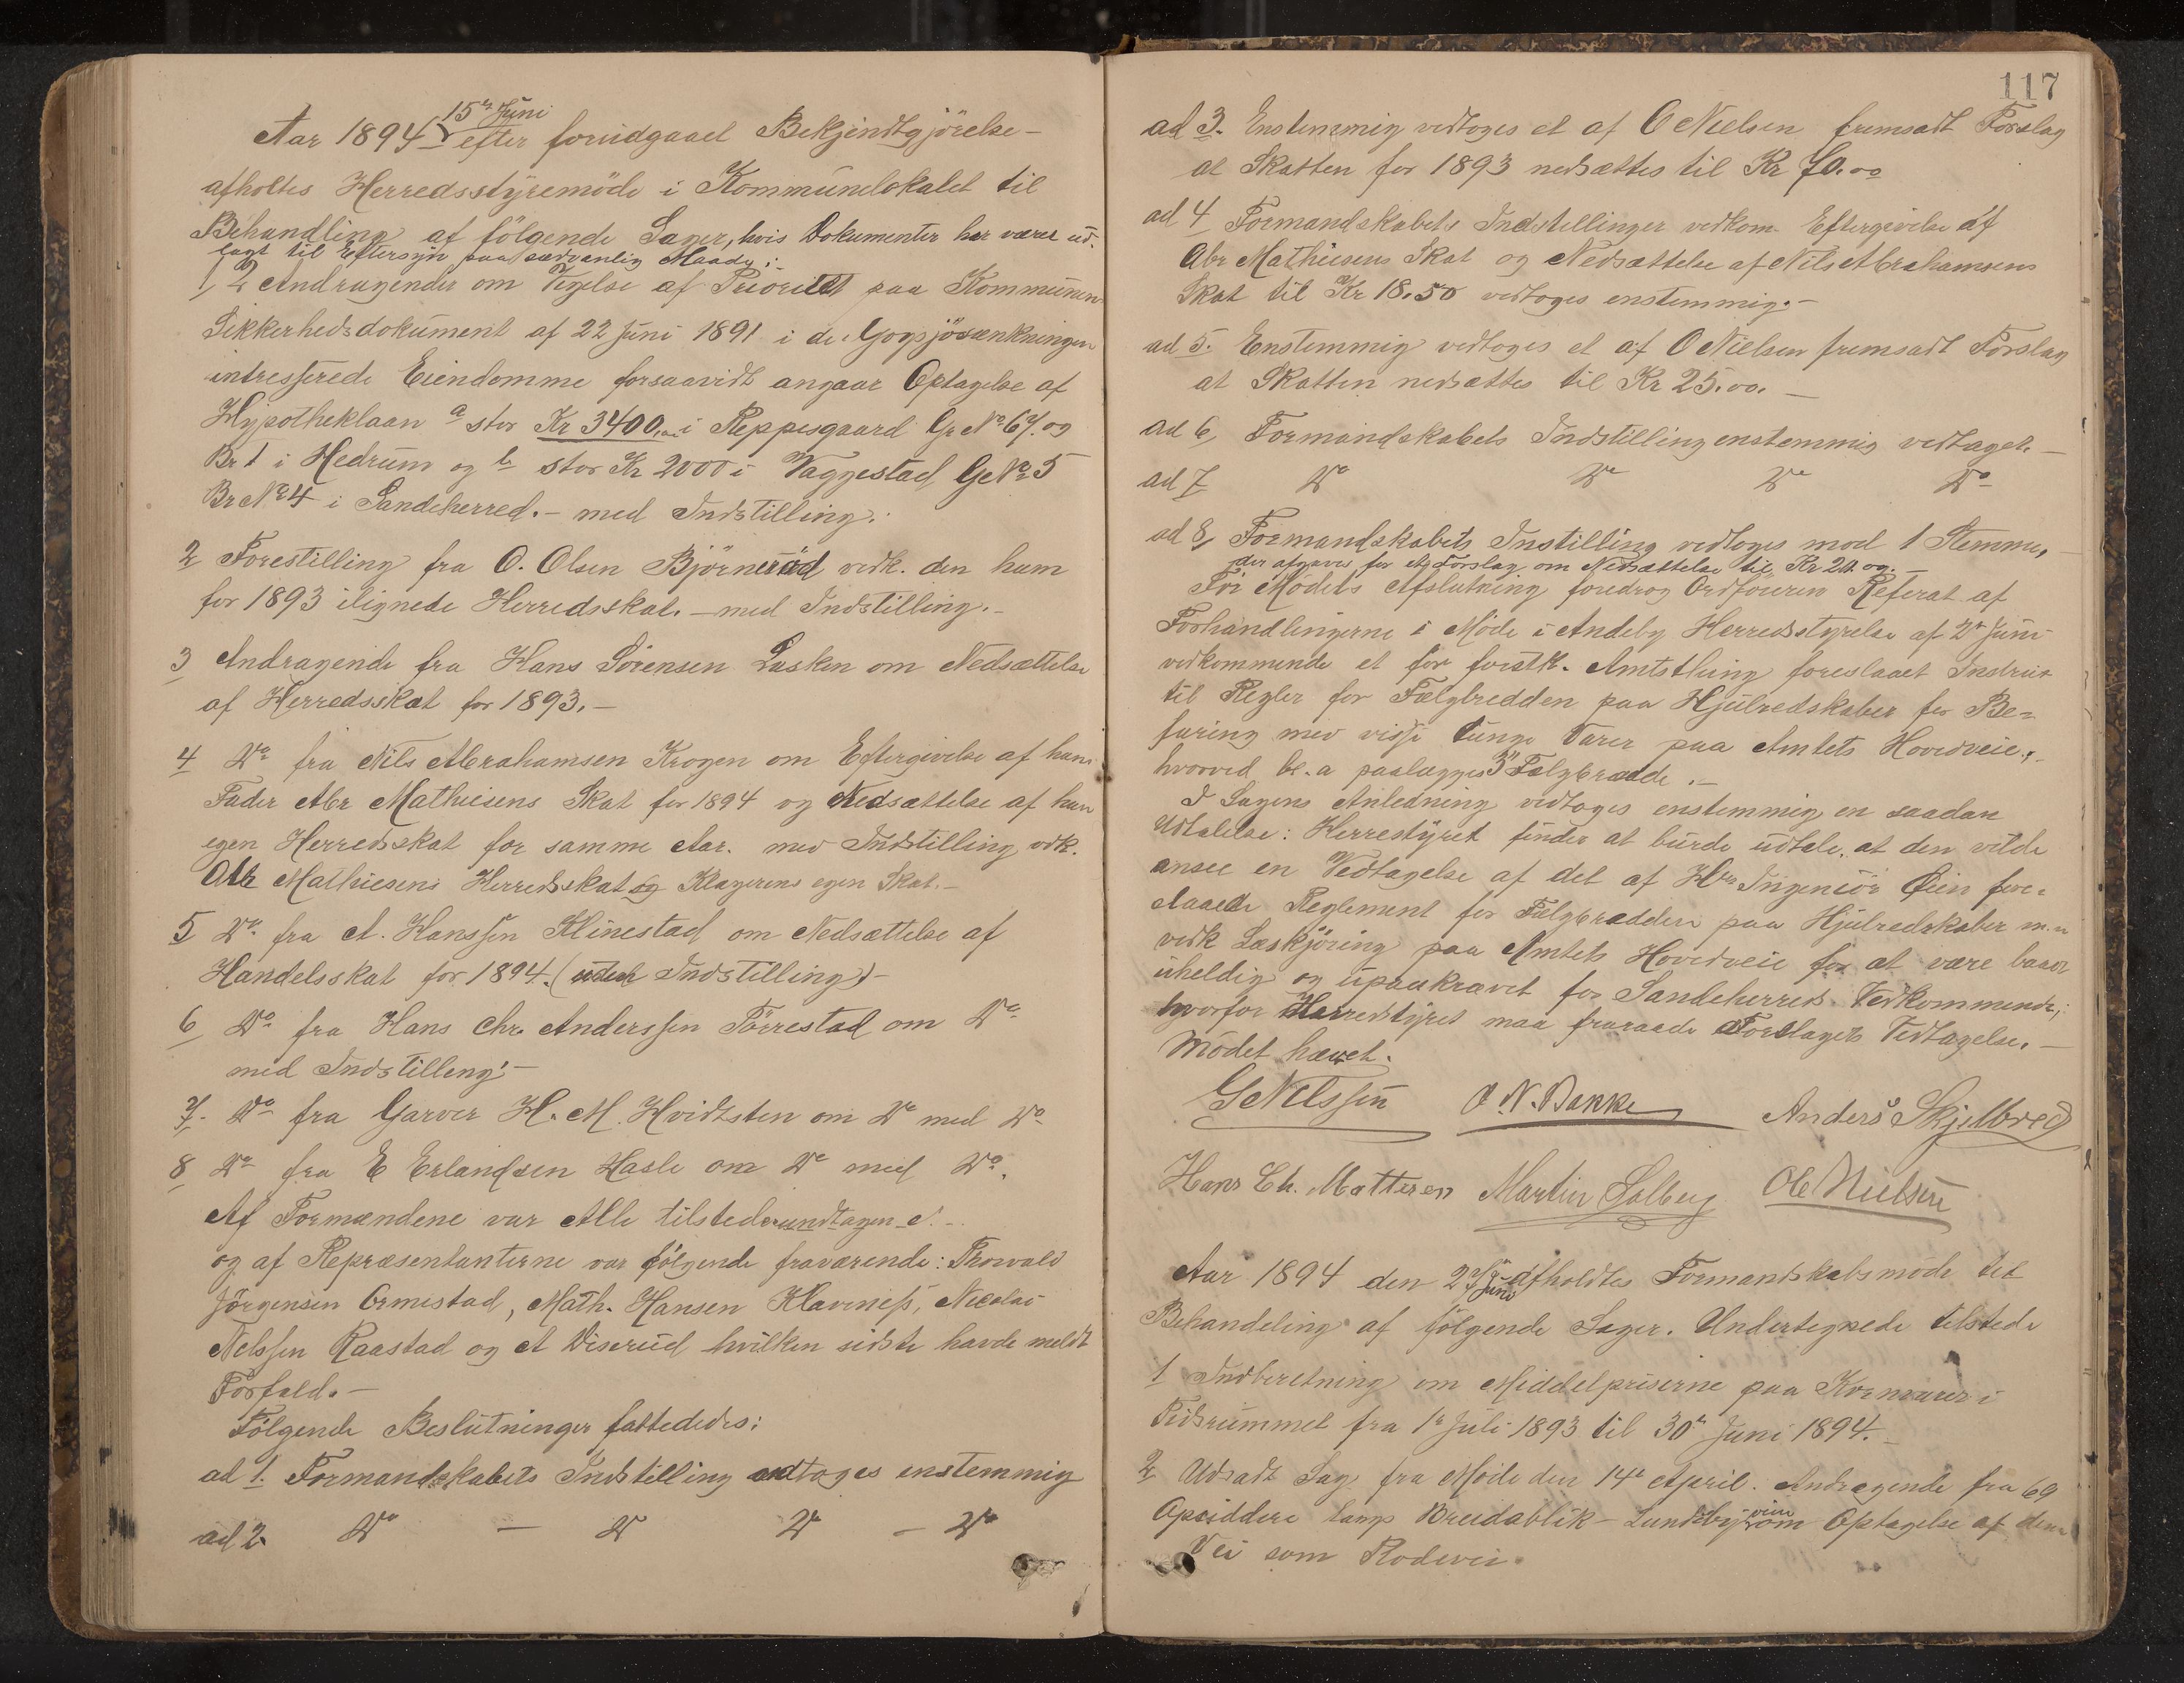 15de Juni
Aar 1894 efter forudgaael Bekjendtgjörelse -
afholtes Herredsstyremöde i Kommunelokalet til
Behandling af fölgende Sager, hvis Dokumenter har været ud-
lagt til Eftersyn paa sædvanlig Maade;
1, 2 Andragender om Vigelse af Prioritet paa Kommunen
Sikkerhedsdokument af 22 Juni 1891 i de Gogsjösænkningen
intresserede Eiendomme forsaavidt angaar Optagelse af
Hypotheklaan a stor Kr 3400,00 i Reppesgaard Gr No 67. og
Br 1 i Hedrum og b stor Kr 2000 i Vaggestad, G No 5
Br No 4 i Sandeherred. - med Indstilling.
2 Forestilling fra O. Olsen Björneröd vedk. den ham
for 1893 ilignede Herredsskat. - med Indstilling. -
3 Andragende fra Hans Sörensen Lasken om Nedsættelse
af Herredsskat for 1893. -
4 Do fra Nils Abrahamsen Krogen om Eftergivelse af hans
Fader Abr Mathiesens Skat for 1894 og Nedsættelse af han
egen Herredsskat for samme Aar. med Indstilling vdk.
Abr Mathiesens Herredsskat og Klagerens egen Skat. -
5 Do. fra A. Hanssen Klinestad om Nedsættelse af
Handelsskat for 1894. (uden Indstilling) -
6 Do fra Hans Chr. Anderssen Törrestad om Do
med Indstilling. -
7. Do fra Garver H. M. Hvidtsten om Do med Do
8 Do fra E Erlandsen Hasle om Do med Do.
Af Formændene var Alle tilstede undtagen
og af Repræsentanterne var fölgende fraværende: Thorvald
Jörgensen Ormestad, Math. Hansen Klavness, Nicolai
Nelssen Raastad og A Viserud hvilken sidste havde meldt
Forfald. -
Fölgende Beslutninger fattededes:
ad 1. Formandskabets Indstilling vedtoges enstemmig
ad 2. Do - Do Do - Do
117
ad 3. Enstemmig vedtoges et af O Nielsen fremsadt Forslag
at Skatten for 1893 nedsættes til Kr 70.00
ad 4 Formandskabets Indstillinger vedkom Eftergivelse af
Abr Mathiesens Skat og Nedsættelse af Nils Abrahamsens
Skat til Kr 18.50 vedtoges enstemmig. -
ad 5. Enstemmig vedtoges et af O Nielsen fremsadt Forslag
at Skatten nedsættes til Kr 25.00. -
ad 6, Formandskabets Indstilling enstemmig vedtaget. -
ad 7 Do Do Do Do
ad 8, Formandskabets Instilling vedtoges mod 1 Stemme,
der afgaves for et Forslag om Nedsættelse til Kr 20.00. -
För Mödets Afslutning foredrog Ordföreren Referat af
Forhandlingerne i Möde i Andeby Herredsstyrelse af 2de Juni
vedkommende et for forestk. Amtsthing foreslaaet Instrux
til Regler for Fælgbredden paa Hjulredskaber for Be=
faring med visse tunge Varer paa Amtets Hovedveie,
hvorved bl. a paalægges 3" Fælgbrædde. -
I Sagens Anledning vedtoges enstemmig en saadan
Udtalelse: Herrestyret finder at burde udtale, at den vilde
ansee en Vedtagelse af det af Hr Ingeniör Öien fore=
slaaede Reglement for Fælgbrædden paa Hjulredskaber m.m
vedk Læskjöring paa Amtets Hovedveie for at være baade
uheldig og upaakrævet for Sandeherreds Vedkommende;
hvorfor Herredstyret maa fraraade Forslagets Vedtagelse. -
Mödet hævet.
G Nilssen O. N. Bakke Anders Skjelbred
Hans Ch. Mattesen Martin Solberg Ole Nielsen
Aar 1894 den 27de Juni afholdtes Formandskabsmöde til
Behandeling af fölgende Sager. Undertegnede tilstede
1 Indberetning om Middelpriserne paa Kornvarer i
Tidsrummet fra 1e Juli 1893 til 30te Juni 1894. -
2 Udsadt Sag fra Möde den 14de April. Andragende fra 69
Opsiddere langs Breidablik - Lundeby veien om Optagelse af denne
Vei som Rodevei.